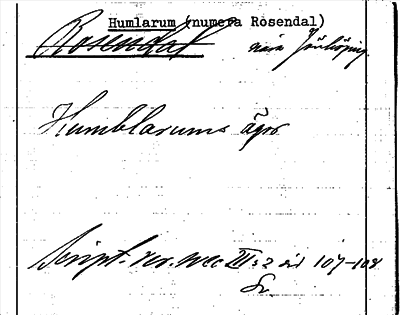 Humlarum (numera Rosendal)
Rosendal nära Jönköping.
Humblarums ägor
Script. rer. svec III:2 sid 107-108
Sr.